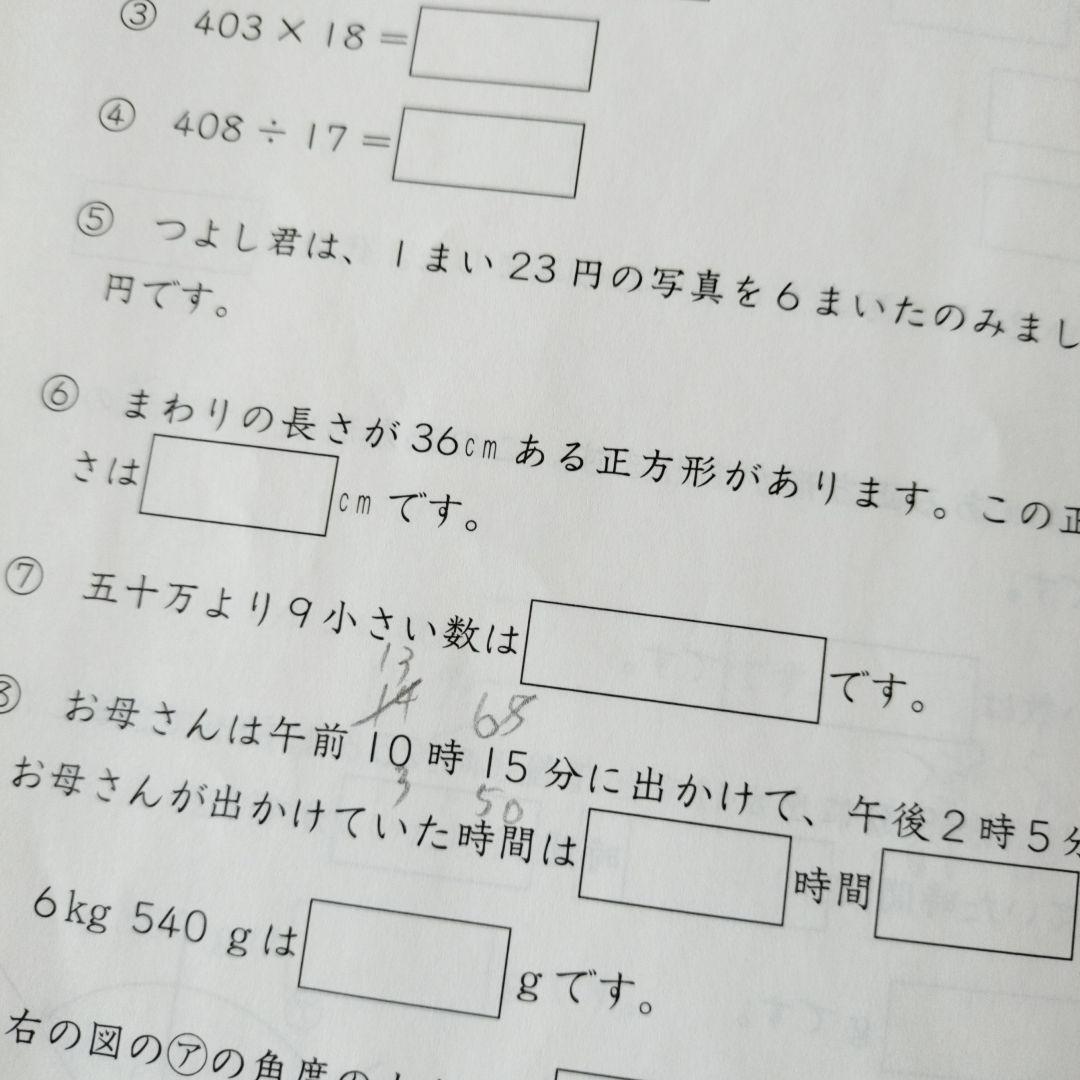 ③ 403 × 18 =
④ 408 ÷ 17 =
⑤ つよし君は、1まい23円の写真を6まいたのみまし
円です。
⑥ まわりの長さが36cmある正方形があります。この正
さは cmです。
⑦ 五十万より9小さい数は です。
13
14 65
⑧ お母さんは午前10時15分に出かけて、午後2時5分
3 50
お母さんが出かけていた時間は 時間
6kg 540gは gです。
右の図の㋐の角度の